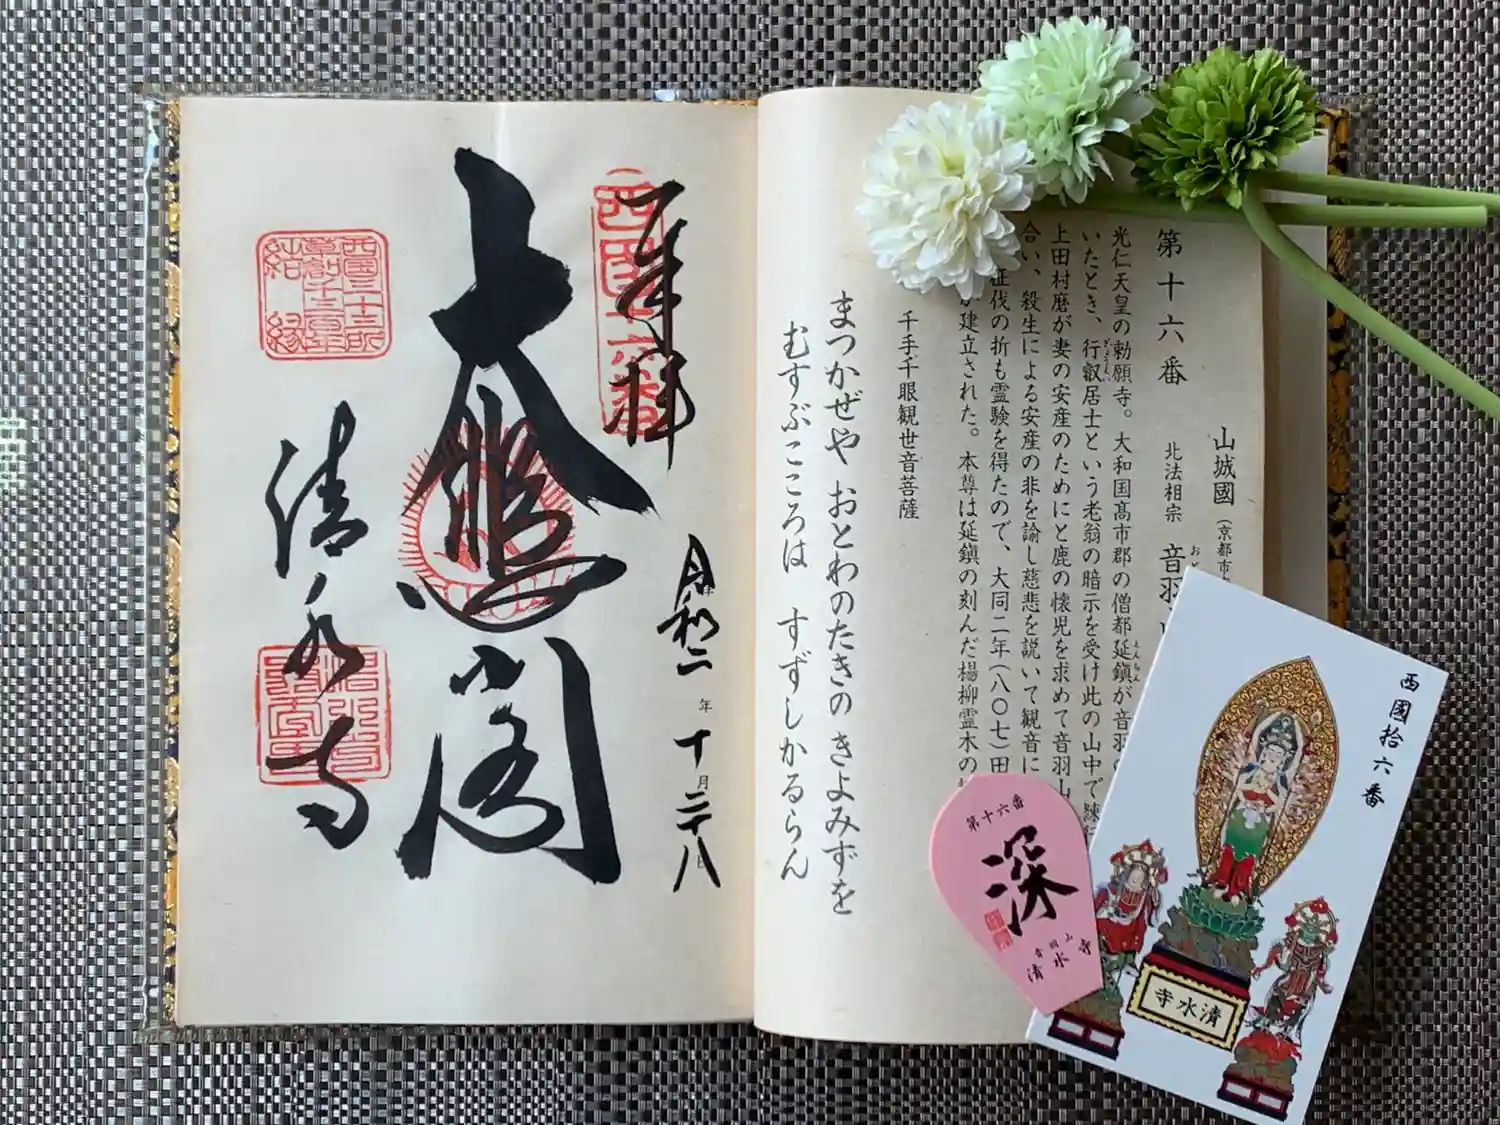 山城國(京都市
第十六番
北法相宗 音羽
光仁天皇の勅願寺。大和国高市郡の僧都延鎮が音羽
いたとき、行叡居士という老翁の暗示を受け此の山中で練
上田村麿が妻の安産のためにと鹿の懐児を求めて音羽山
合い、殺生による安産の非を諭し慈悲を説いて観音に
征伐の折も霊験を得たので、大同二年(八〇七)田
が建立された。本尊は延鎮の刻んだ楊柳霊木の
千手千眼観世音菩薩
まつかぜや おとわのたきの きよみずを
むすぶこころは すずしかるらん
奉拝
西国十六番
令和二年十月二十八日
大悲閣
西国三十三所
草創千三百年
結縁
清水寺
第十六番
深
音羽山
清水寺
西國拾六番
清水寺